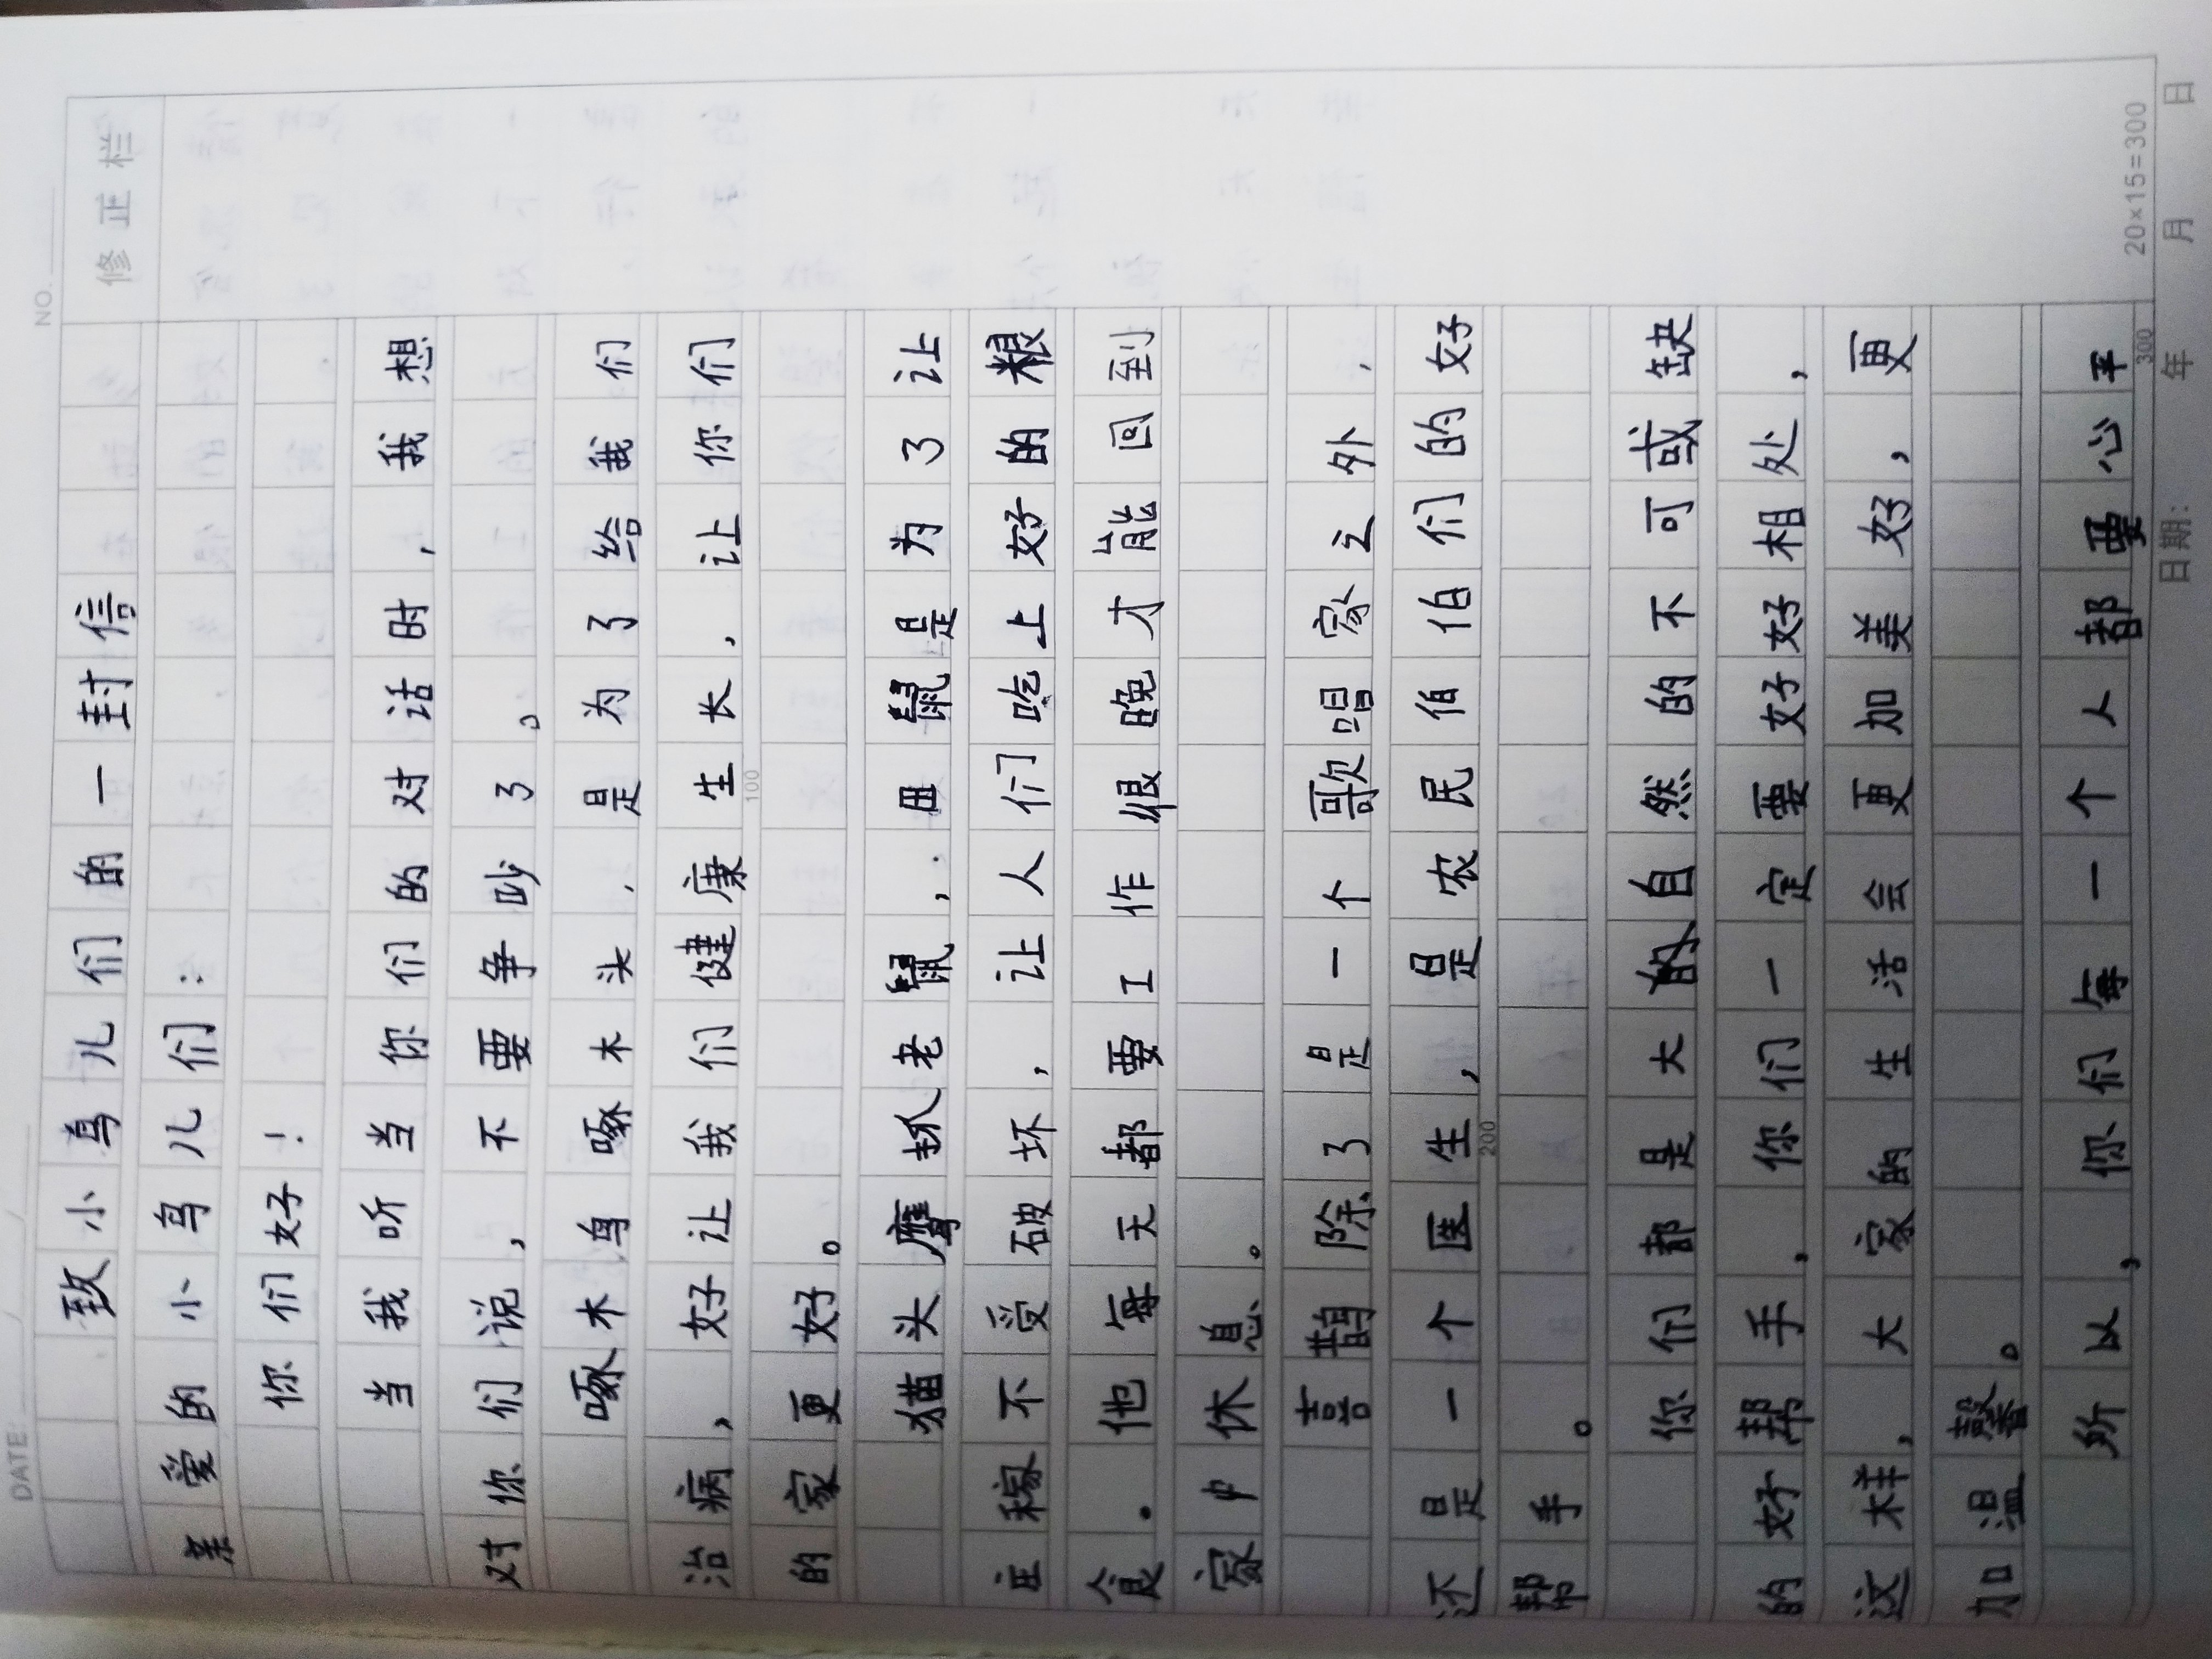 DATE: / / NO.
修正栏
致小鸟儿们的一封信
亲爱的小鸟儿们:
你们好!
当我听当你们的对话时,我想
对你们说,不要争吵了。
啄木鸟啄木头,是为了给我们
治病,好让我们健康生长,让你们
100
的家更好。
猫头鹰抓老鼠,田鼠是为了让
庄稼不受破坏,让人们吃上好的粮
食。他每天都要工作很晚才能回到
家中休息。
喜鹊除了是一个歌唱家之外,
还是一个医生,是农民伯伯们的好
200
帮手。
你们都是大自然的不可或缺
的好帮手,你们一定要好好相处,
这样,大家的生活会更加美好,更
加温馨。
所以,你们每一个人都要心平
300
20×15=300
日期: 年 月 日